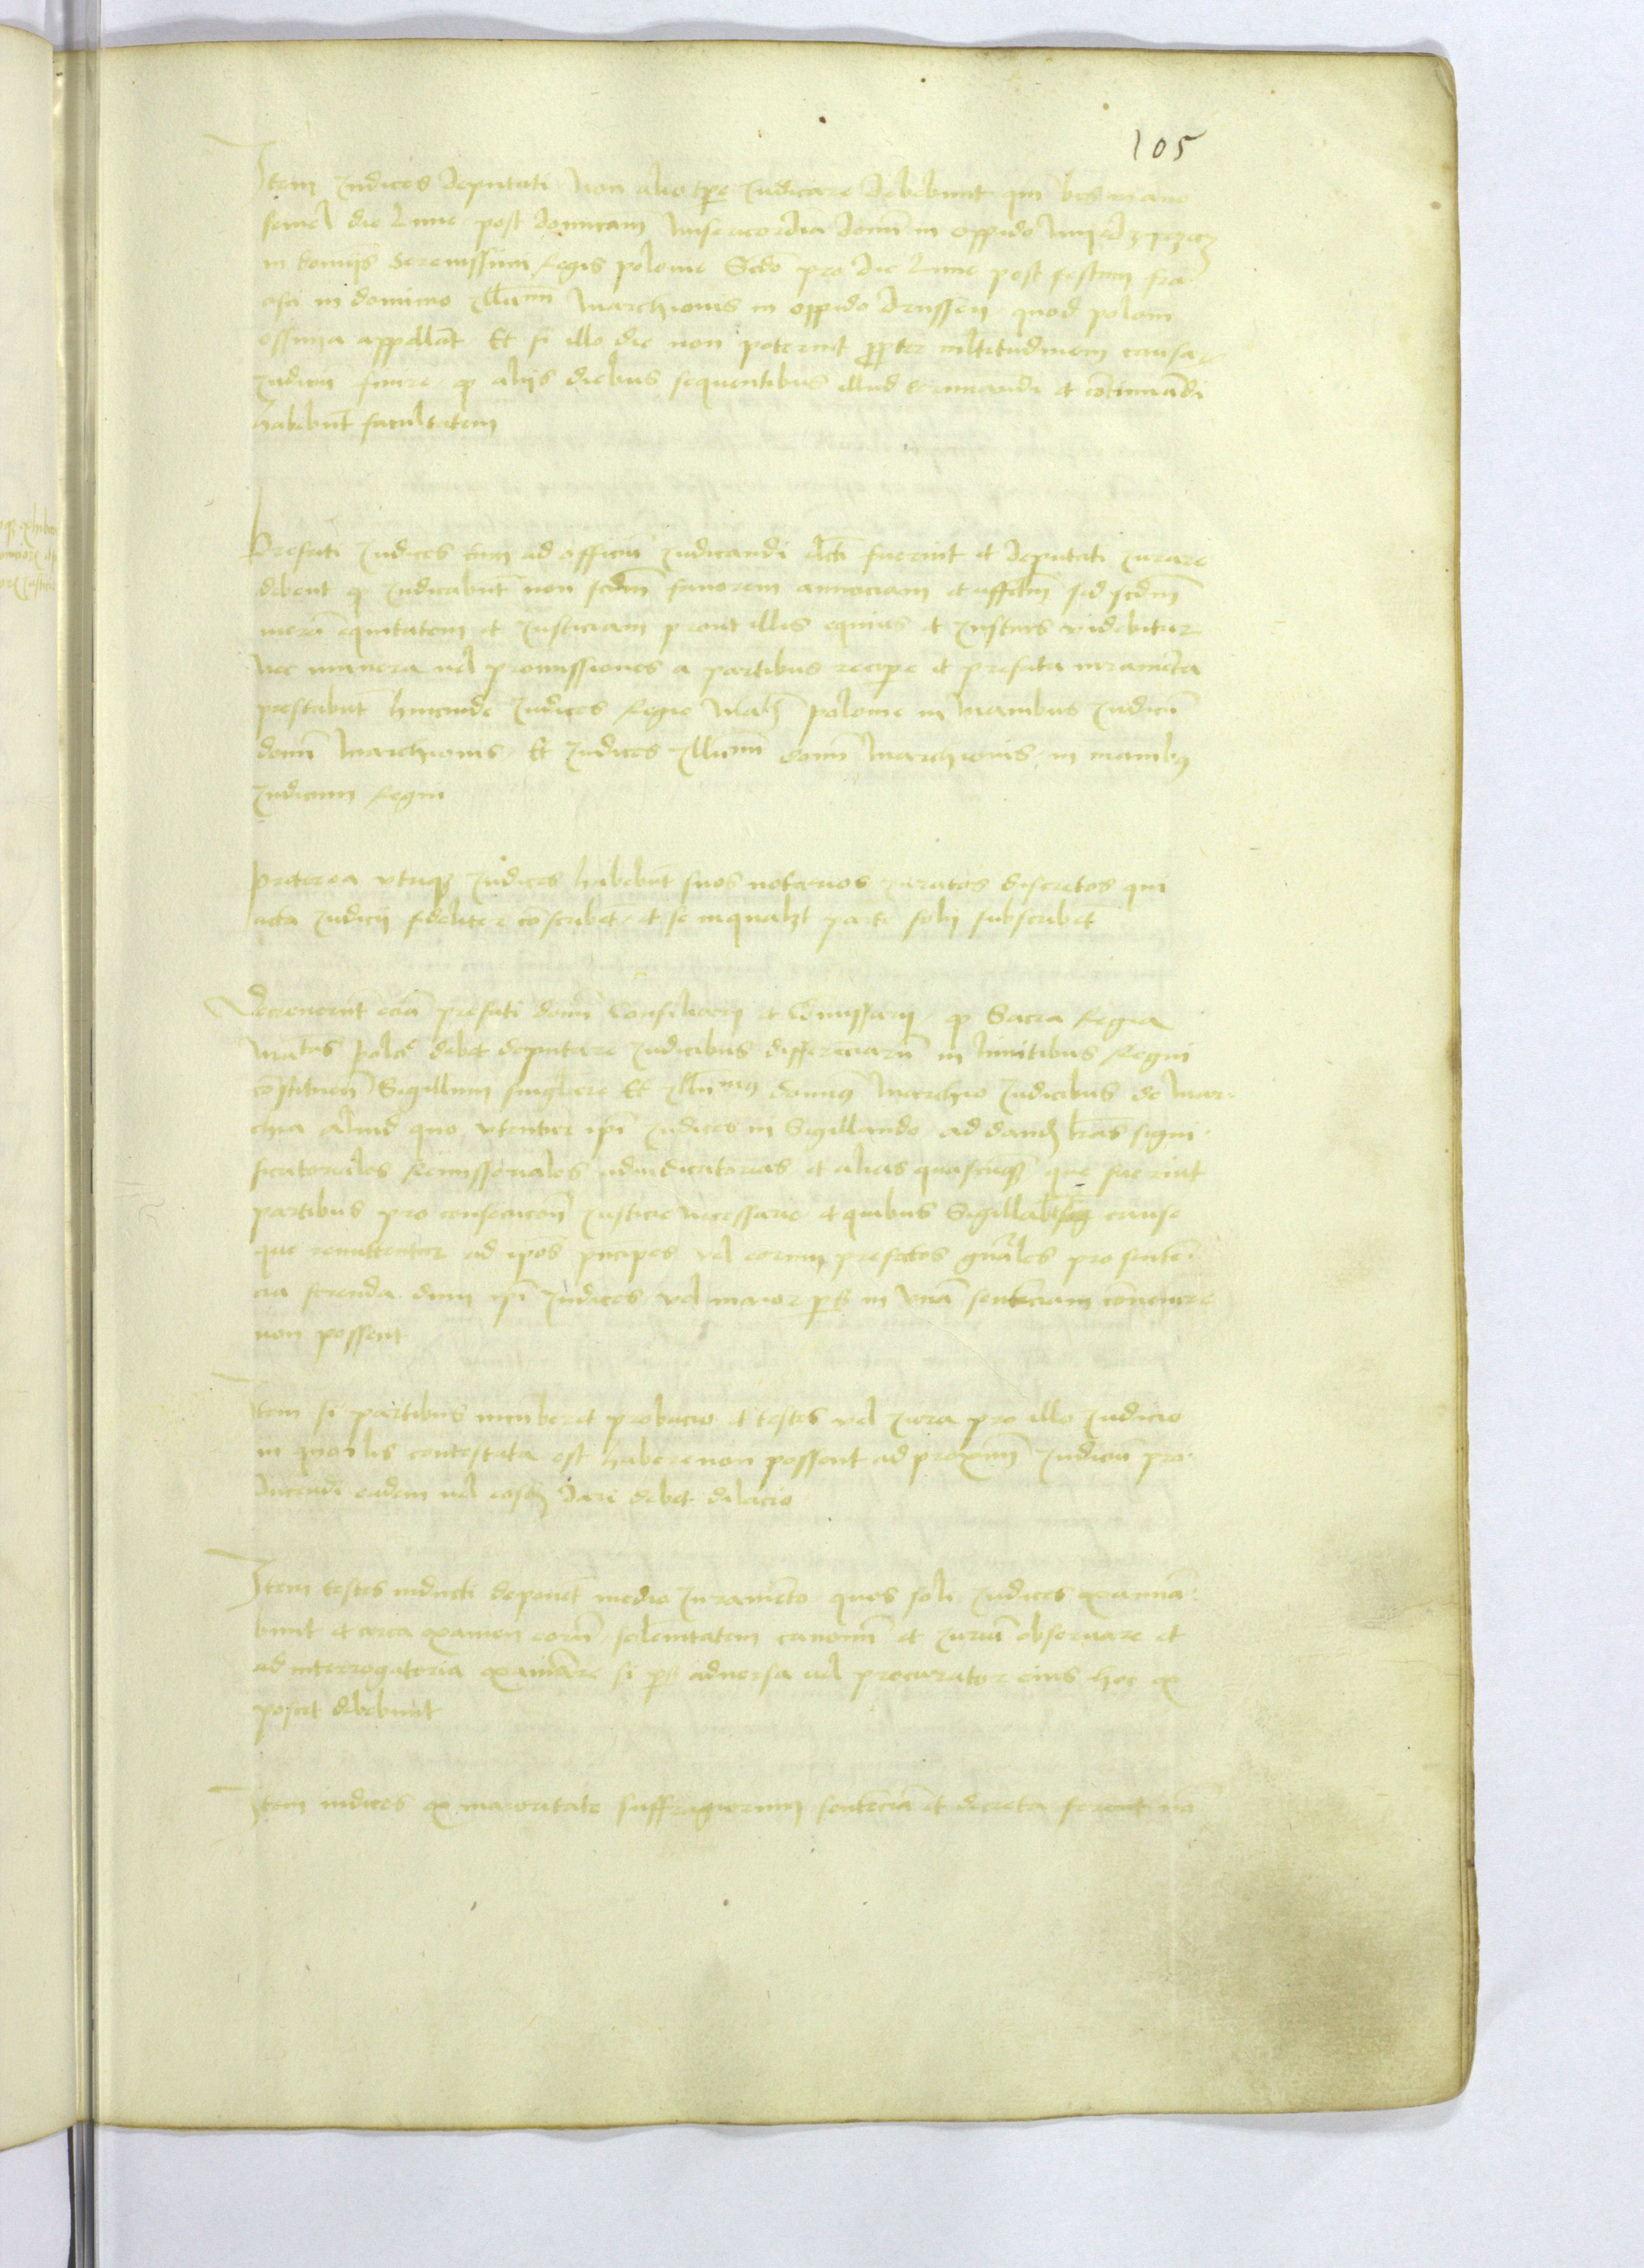 105
Item Judices deputati non alio tpe Judicare debebunt qm bis in ano
semel die Lune post domicam misericordia domi in oppido
in domijs Serenissimi Regis polonie Scdo pro die Lune post festum fra
cisci in dominio Illumi Marchionis in oppido drussen quod poloni
appellat Et si illo die non poterint propter mltitudinem causar
Judiciu finire q alijs diebus sequentibus illud terminandi et cotinuadi
habebut facultatem
Prefati Judices cum ad officiu Judicandi electi fuerint et deputati Jurare
debent q Judicabut non scdm favorem amiciciam et affctm sed scdm
mera equitatem et Justiciam prout illis equius et Justius videbitur
nec munera vel promissiones a partibus recipe et prefata iuramēta
prestabut hincinde Judices Regie Matis polonie in manibus Judicu
domi Marchionis Et Judices Illumi domi Marchionis in manibq
Judicum Regni
Preterea vtriqz Judices habebut suos notarios Juratos discretos qui
acta Judicij fideliter coscribet et se in qualzt parte soli subscribet
Decreverut ecia prefati domi Consiliarij et Comissarij q Sacra Regia
Matas Polo debet deputare Judicibus differeciaru in limitibus Regni
costituen Sigillum singlare Et Illumus domus Marchio Judicibus de Mar
chia aliud quo vtentur ipi Judices in Sigillando ad dand lras signi
ficatoriales Remissoriales adiudicatorias et alias quascuqz que fuerint
partibus pro consecucon Justicie necessarie et quibus cause
que remittentur ad ipos pncipes vel eorum prefectos gnales pro senten
cia ferenda dum ipi Judices vel maior ps in vna sentenciam conenire
non possent
Item si partibus incuberet probacio et testes vel Jura pro illo Judicio
in quo lis contestata est habere non possent ad proximu Judiciu pro
ducendi eadem vel eosdz dari debet dilacio
Item testes inducti deponet medio Juramento quos soli Judices examina
bunt et circa examen eoru solenitatem canonu et Juriu obseruare et
ad interrogatoria examiare si ps adversa vel procurator eius hoc ex
poscet debebunt
Item iudices ex maioritate suffragiorum sentecia et decreta ferent no